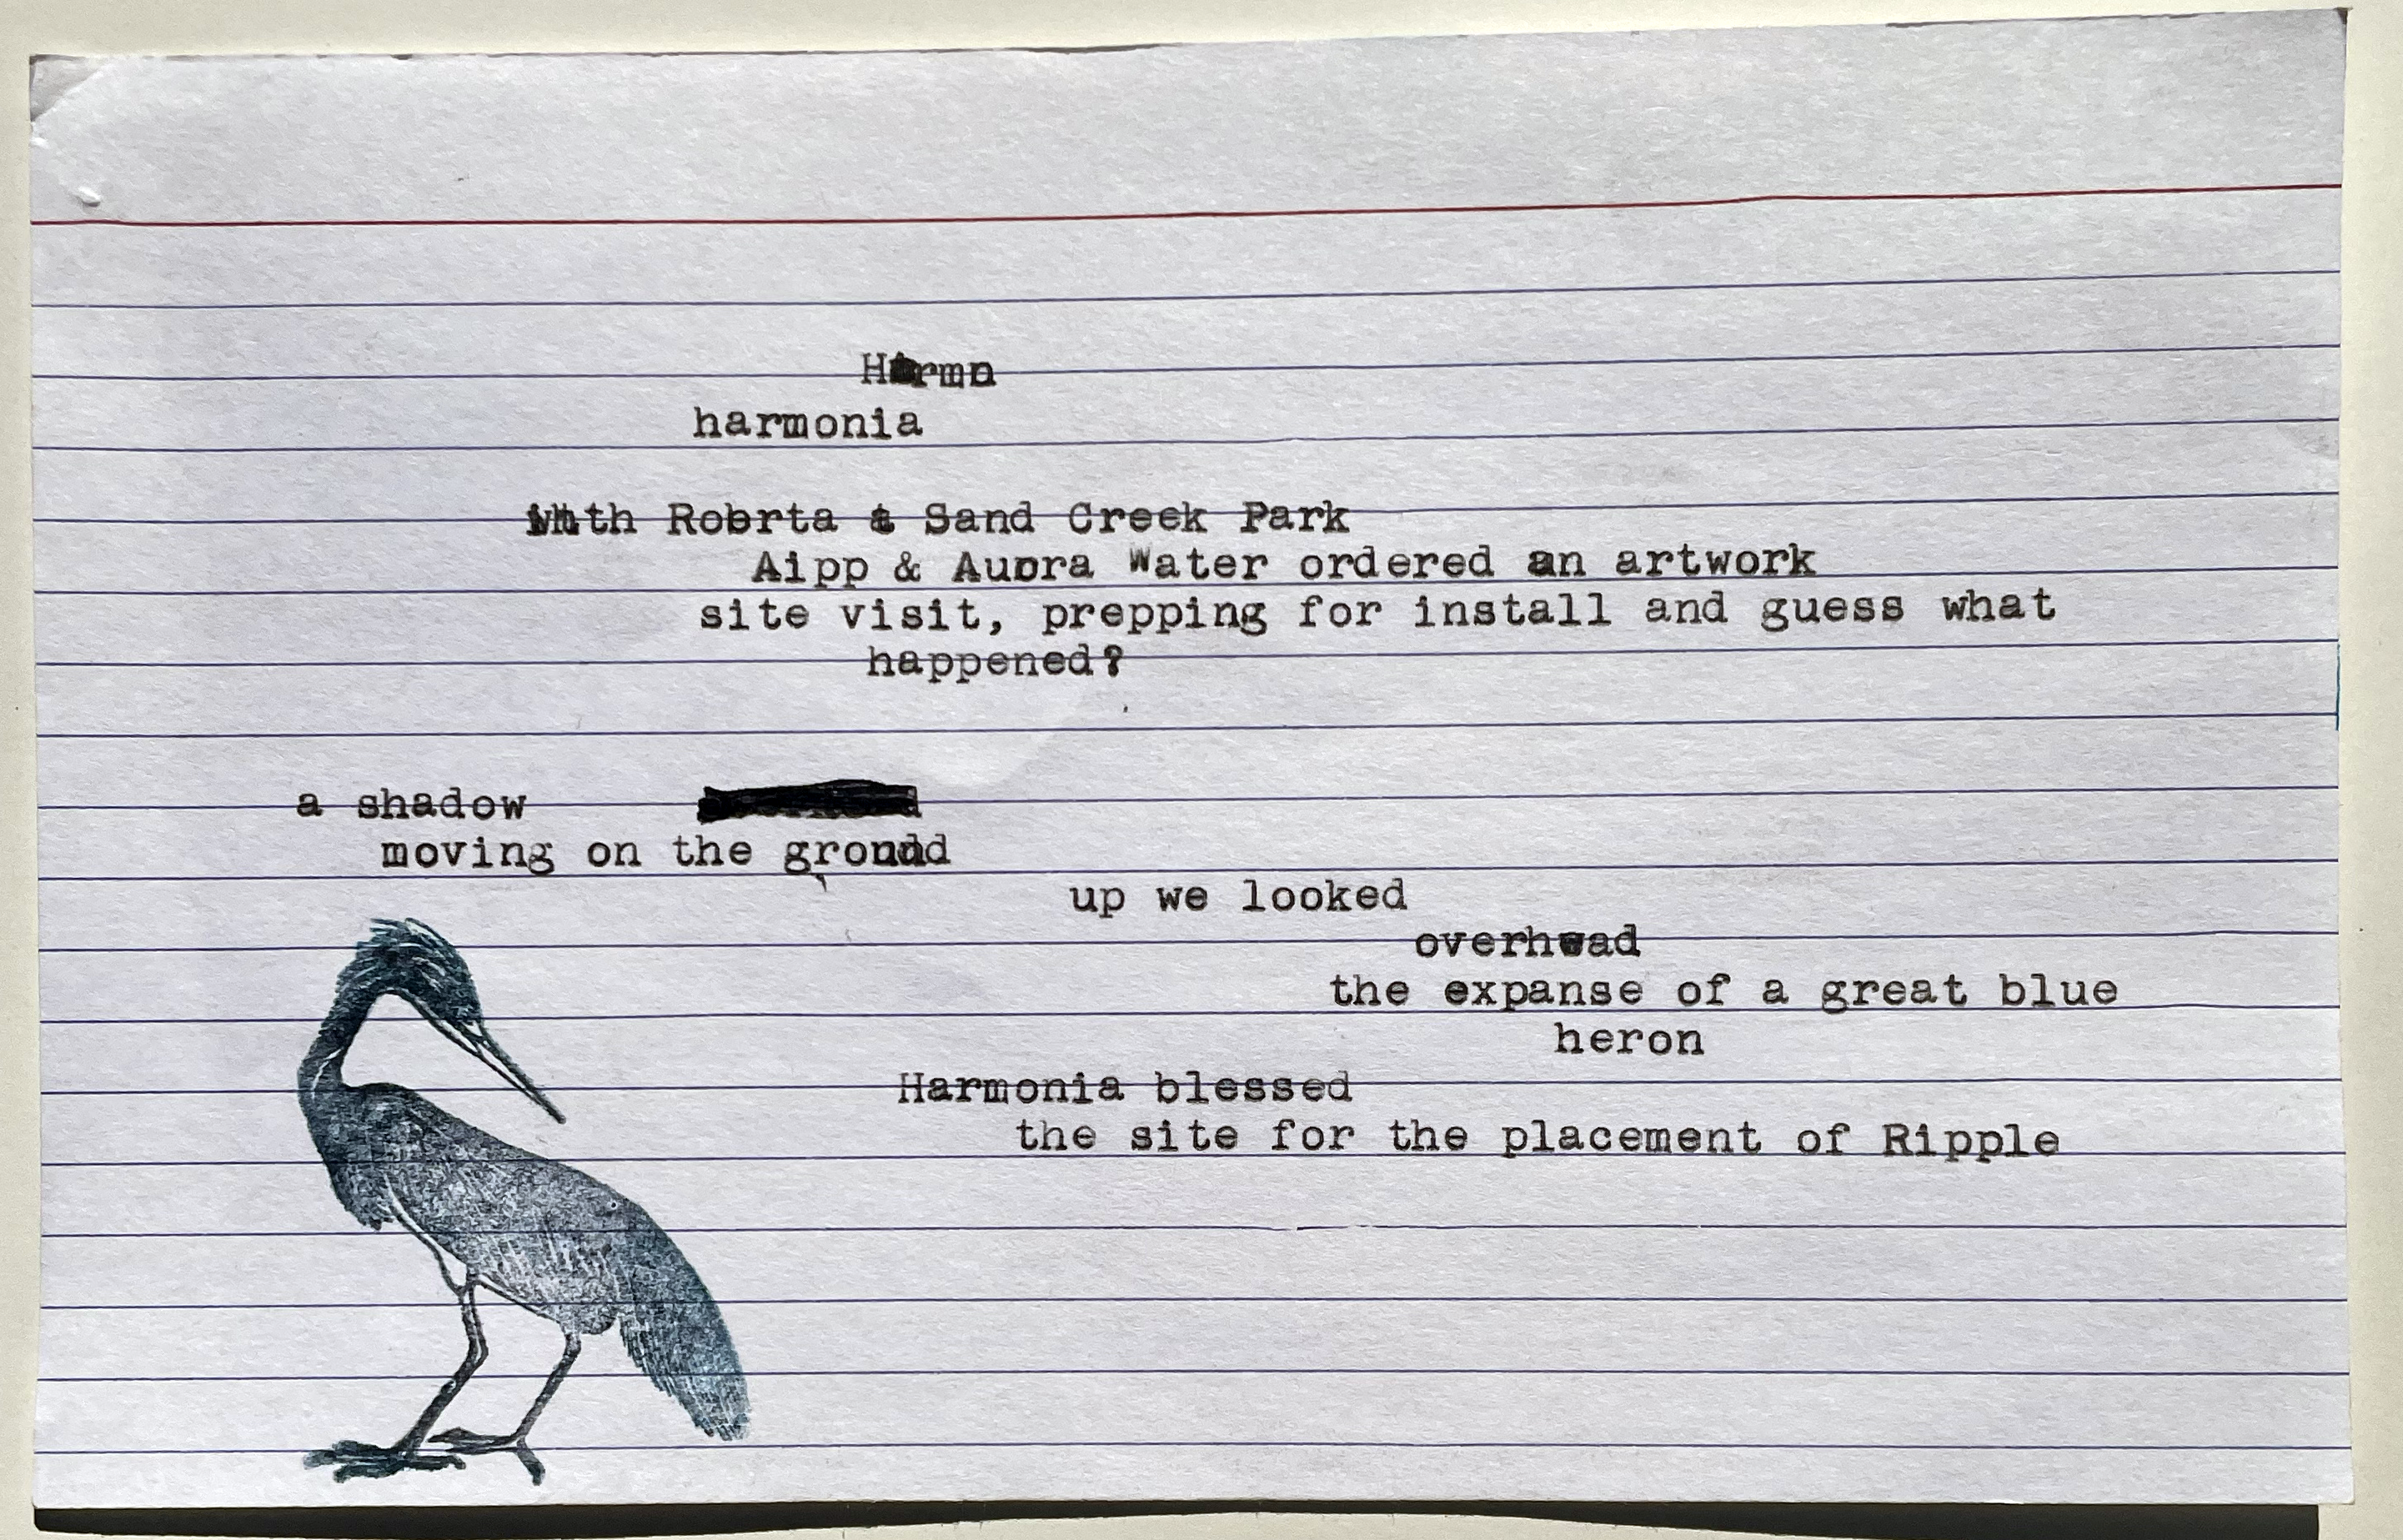 Harmo
harmonia
with Robrta & Sand Creek Park
Aipp & Auora Water ordered an artwork
site visit, prepping for install and guess what
happened?
a shadow
moving on the ground
up we looked
overhead
the expanse of a great blue
heron
Harmonia blessed
the site for the placement of Ripple